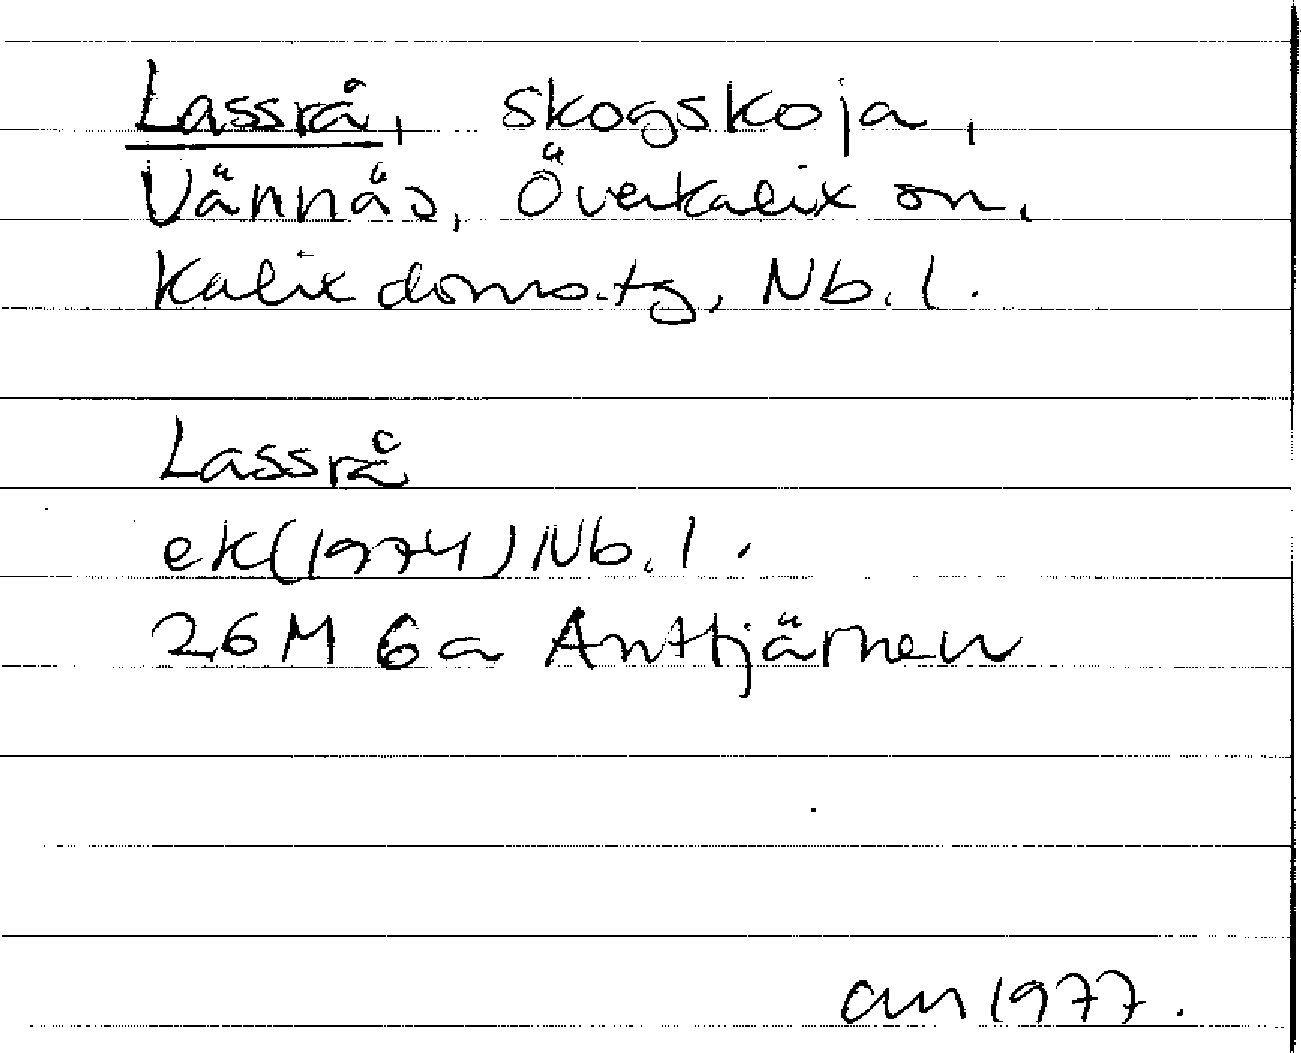 Lasså, skogskoja,
Vännäs, Överkalix sn.
Kalix doms.tg, Nb.l.
Lasså
ek(1974)Nb.l.
26M 6a Anttjärnen
am 1977.